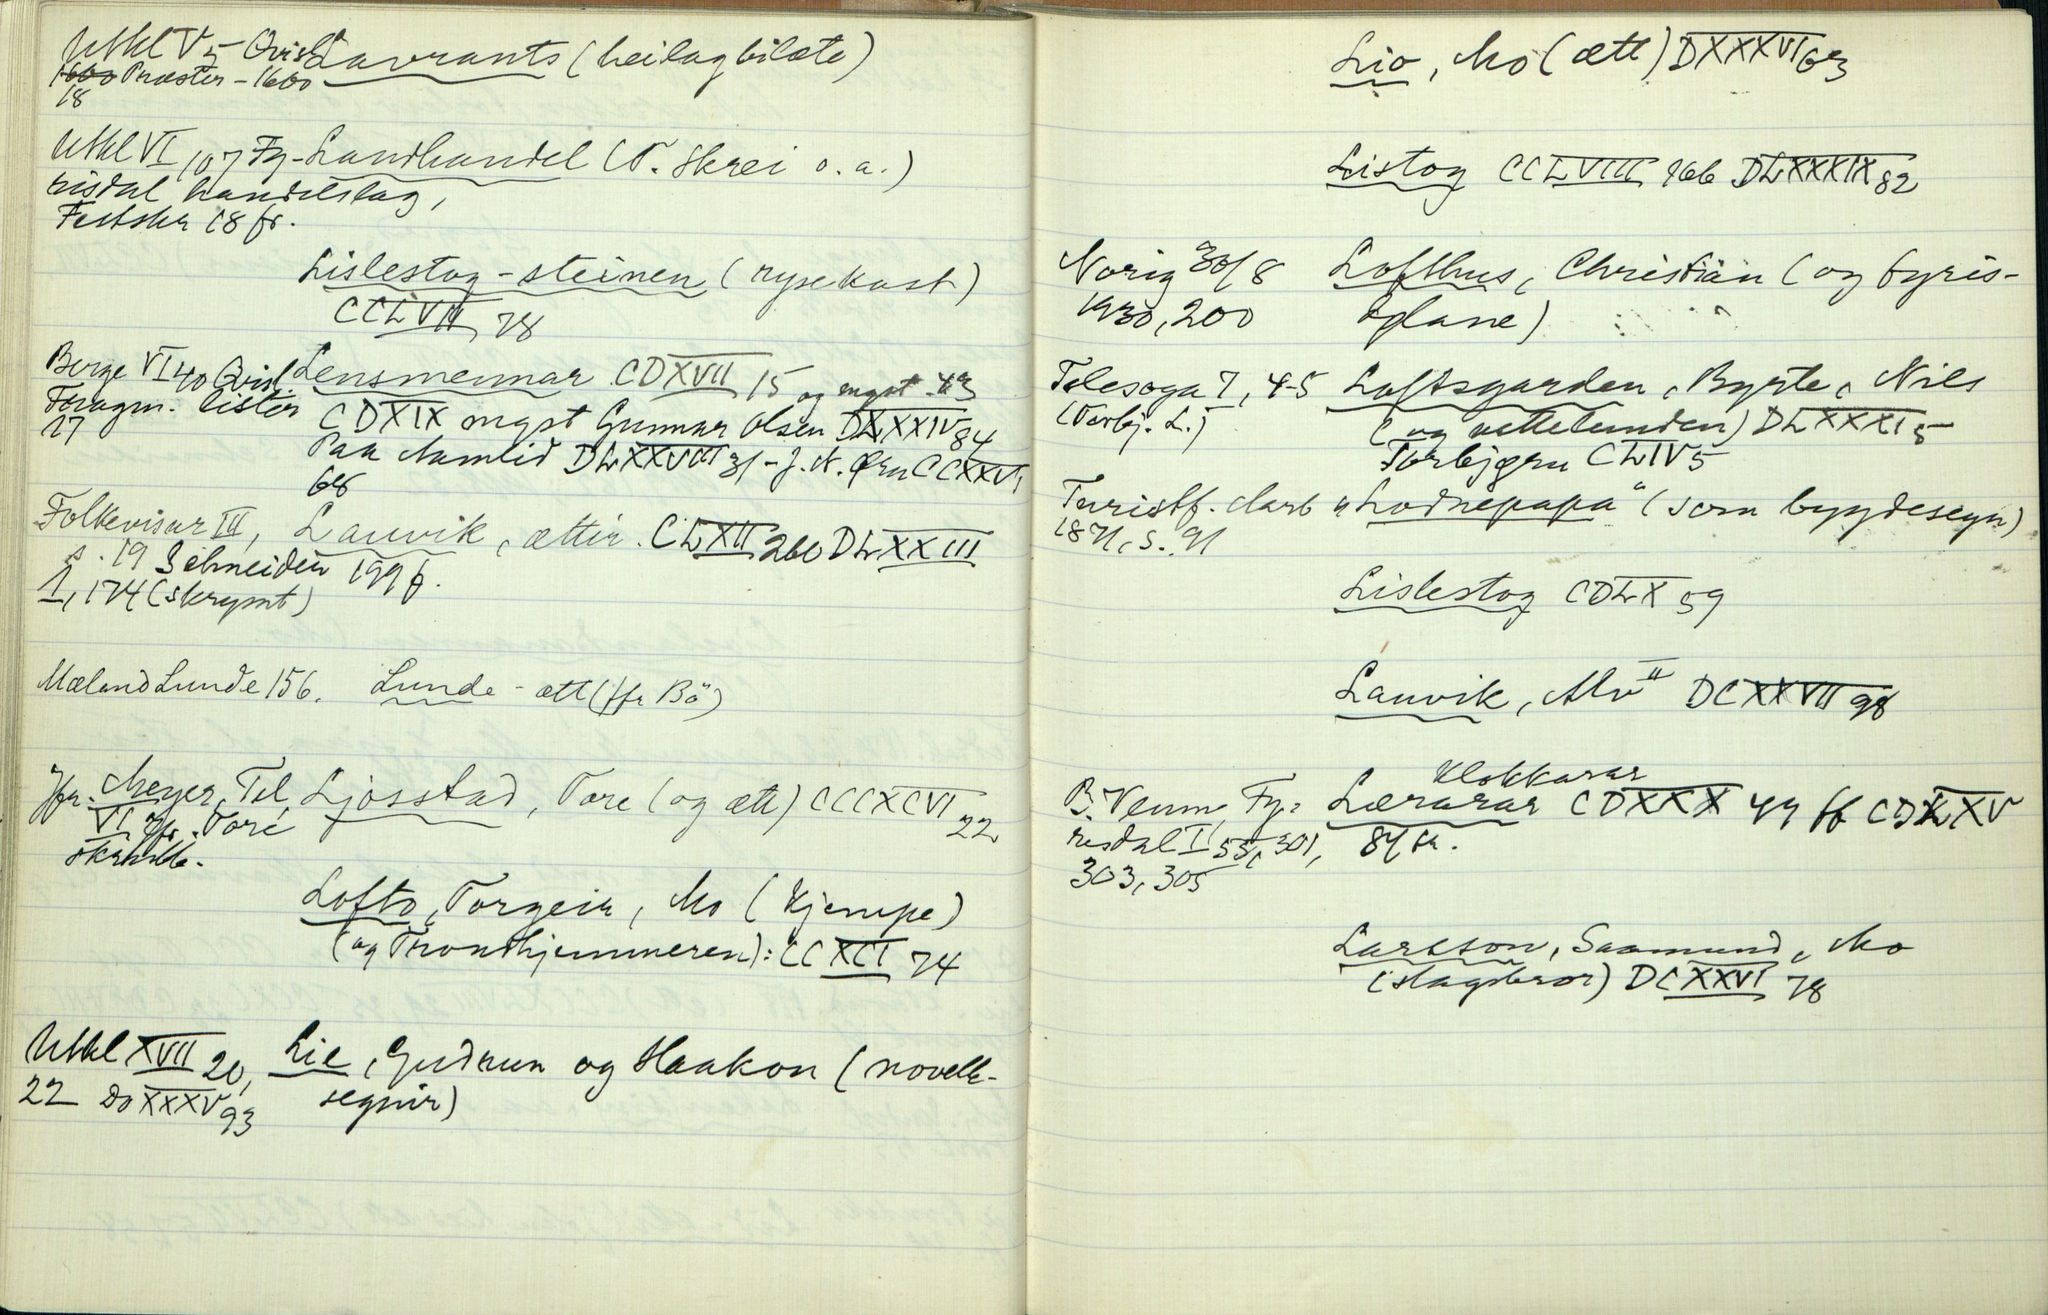 Utkl V 5 Qvisl. Lavrants (heilagbilæte)
Præster - 1660
18
Utkl VI 107 Fy- Landhandel (T. Skrei o. a.)
risdal handelslag,
Festskr 18 fr.
Lislestog-steinen (rysekast)
CCLVII 78
Berge VI 40 Qvisl. Lensmennar CDXVII 15 og mgst. 43
Fragm. lister CDXIX mgst Gunnar Olsen DLXXXIV 84
17 Paa Namlid DLXXVIII 31 - J. N. Ørn CCXXVI
68
Folkevisur III, Lauvik, ættir. CLXII 260 DLXXIII
s. 19 Schneider 199 f.
1, 174 (skrymt)
Mæland Lunde 156. Lunde - ætt (jfr Bö)
Jfr. Meyer, Tel, Ljosstad, Tore (og ætt) CCCXCVI 22
VI jfr. Tore
Lofto, Torgeir, Mo (kjempe)
(og Trondhjemmeren): CCXCI 74
Utkl XVII 20, Lie, Gudrun og Haakon (novelle-
22 DOXXXV 93 segnir)
Lio, Mo (ætt) DXXXVI 63
Listog CCLVIII 166 DLXXXIX 82
Norig 30/8 Lofthus, Christian (og fyris-
1930, 200 dølane)
Telesoga 7, 4-5 Loftsgarden, Byrte, Nils
(Torbj. L.) (og vettelunden) DLXXXI 5
Torbjørn CLIV 5
Turistf. Aarb "Lodnepapa" (som bygdesegn)
1871, s. 91
Lislestog CDLX 59
Lauvik, Alv II DCXXVII 98
Klokkarar
B. Veum, Fy= Lærarar CDXXX 49 ff CDLXV
risdal I 55, 301, 84 fr.
303, 305
Larsson, Saamund, Mo
(slagsbror) DCXXVI 78